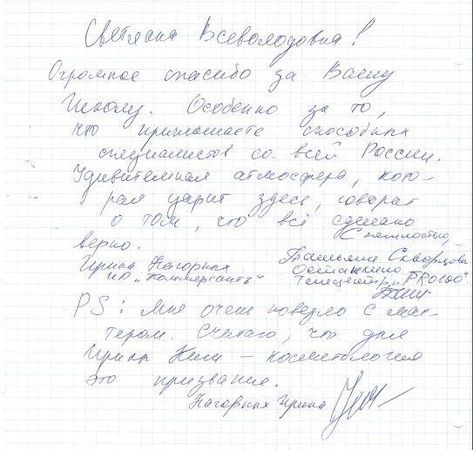 Светлана Всеволодовна!
Огромное спасибо за Вашу
Школу. Особенно за то,
что приглашаете способных
специалистов со всей России.
Удивительная атмосфера, кото-
рая царит здесь, говорит
о том, что всё сделано
верно.
С нежностью,
Ирина Нагорных
ИД "Коммерсантъ"
Татьяна Скворцова
Останкино
телецентр, "PRO100"
PS: Мне очень повезло с мас-
тером. Считаю, что для
Ирины Ким – косметология
это призвание.
Нагорных Ирина